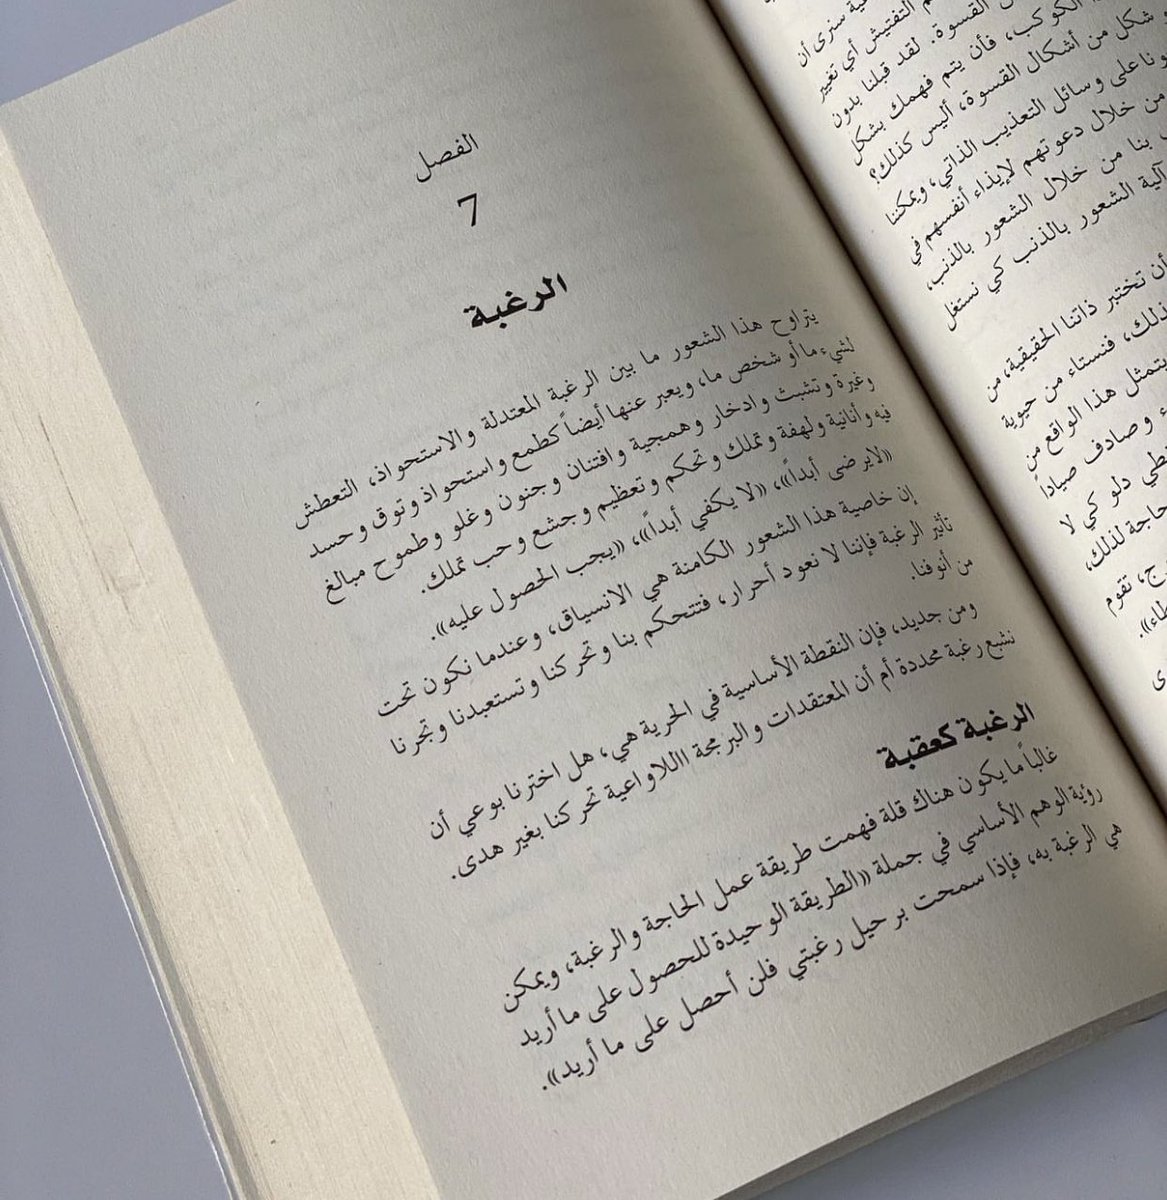 الفصل
7
الرغبة
يتراوح هذا الشعور ما بين الرغبة المعتدلة والاستحواذ، التعطش
لشيء ما أو شخص ما، ويعبر عنها أيضاً كطمع واستحواذ وتوق وحسد
وغيرة وتشبث وادخار وهمجية وافتنان وجنون وغلو وطموح مبالغ
فيه وأنانية ولهفة وتملك وتحكم وتعظيم وجشع وحب تملك.
«لا يرضى أبداً»، «لا يكفي أبداً»، «يجب الحصول عليه».
إن خاصية هذا الشعور الكامنة هي الانسياق، وعندما نكون تحت
تأثير الرغبة فإننا لا نعود أحرار، فتتحكم بنا وتحركنا وتستعبدنا وتجرنا
من أنوفنا.
ومن جديد، فإن النقطة الأساسية في الحرية هي، هل اخترنا بوعي أن
نشبع رغبة محددة أم أن المعتقدات والبرمجة االلاواعية تحركنا بغير هدى.
الرغبة كعقبة
غالباً ما يكون هناك قلة فهمت طريقة عمل الحاجة والرغبة، ويمكن
رؤية الوهم الأساسي في جملة «الطريقة الوحيدة للحصول على ما أريد
هي الرغبة به، فإذا سمحت برحيل رغبتي فلن أحصل على ما أريد».
سنرى أن
التفتيش أي تغيير
القسوة. لقد قبلنا بدون
الكوكب، فأن يتم فهمك بشكل
شكل من أشكال القسوة، أليس كذلك؟
على وسائل التعذيب الذاتي، ويمكننا
من خلال دعوتهم لإيذاء أنفسهم في
بنا من خلال الشعور بالذنب،
آلية الشعور بالذنب كي نستغل
أن نختبر ذاتنا الحقيقية، من
فنستاء من حيوية
يتمثل هذا الواقع من
وصادف صياداً
دلو كي لا
حاجة لذلك،
تقوم